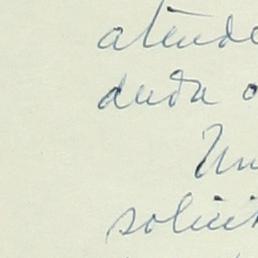 atende
duda o
Un
solicit